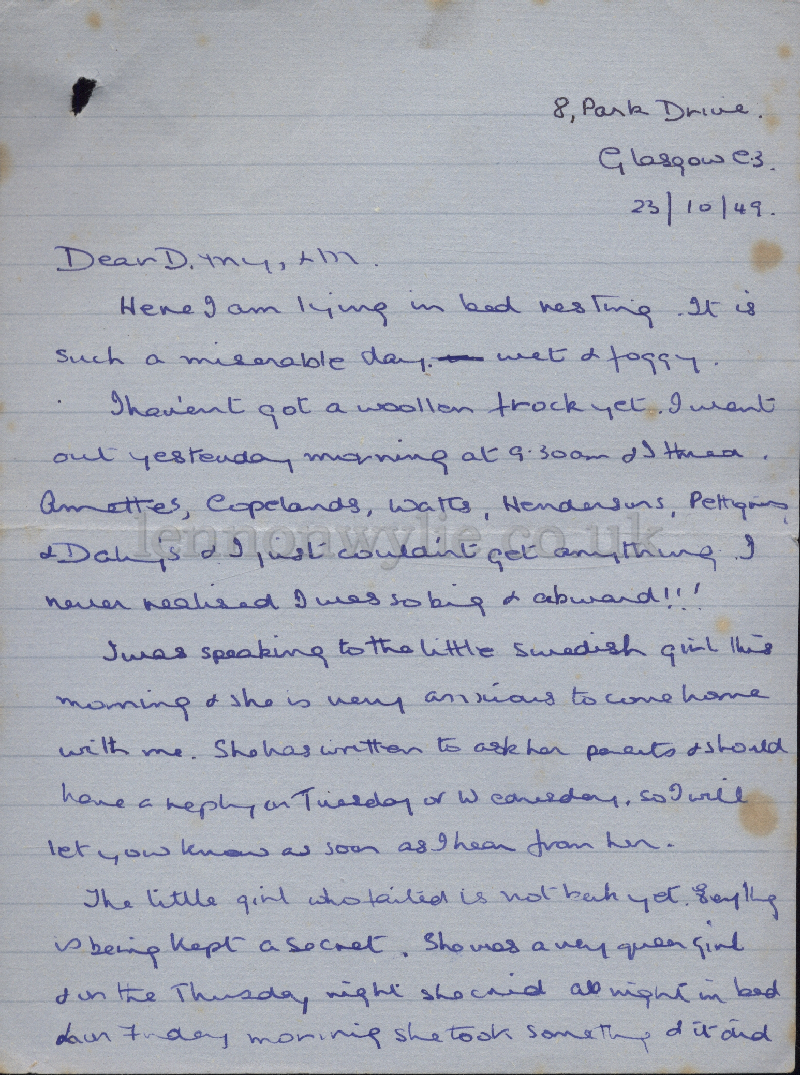 8, Park Drive.
Glasgow C.3.
23/10/49.
Dear D. + My, + M.
Here I am lying in bed resting. It is
such a miserable day. wet & foggy.
I haven't got a woollen frock yet. I went
out yesterday morning at 9.30am & I tried.
Annettes, Copelands, Watts, Hendersons, Pettigrews,
& Daly's & I just couldn't get anything. I
never realised I was so big & awkward!!!
I was speaking to the little Swedish girl this
morning & she is very anxious to come home
with me. She has written to ask her parents & should
have a reply on Tuesday or Wednesday, so I will
let you know as soon as I hear from her.
The little girl who failed is not back yet.
is being kept a secret. She was a very queer girl
& on the Thursday night she cried all night in bed
& on Friday morning she took something & it did
lennonwylie.co.uk